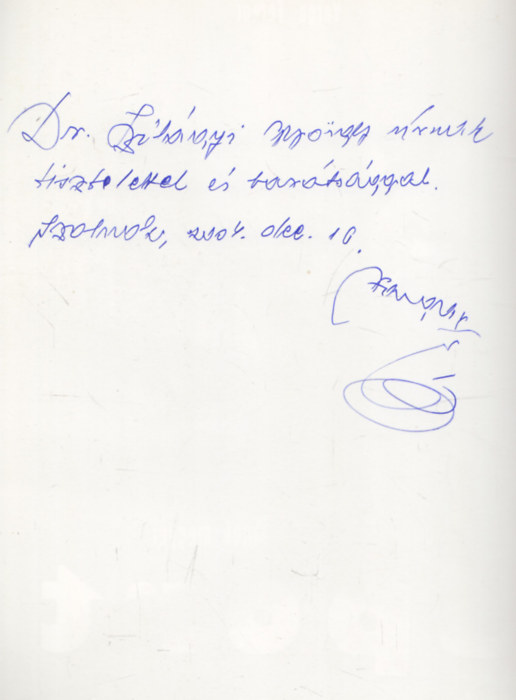 Dr. Szihányi György úrnak
tisztelettel és barátsággal.
Szolnok, 2004. dec. 10.